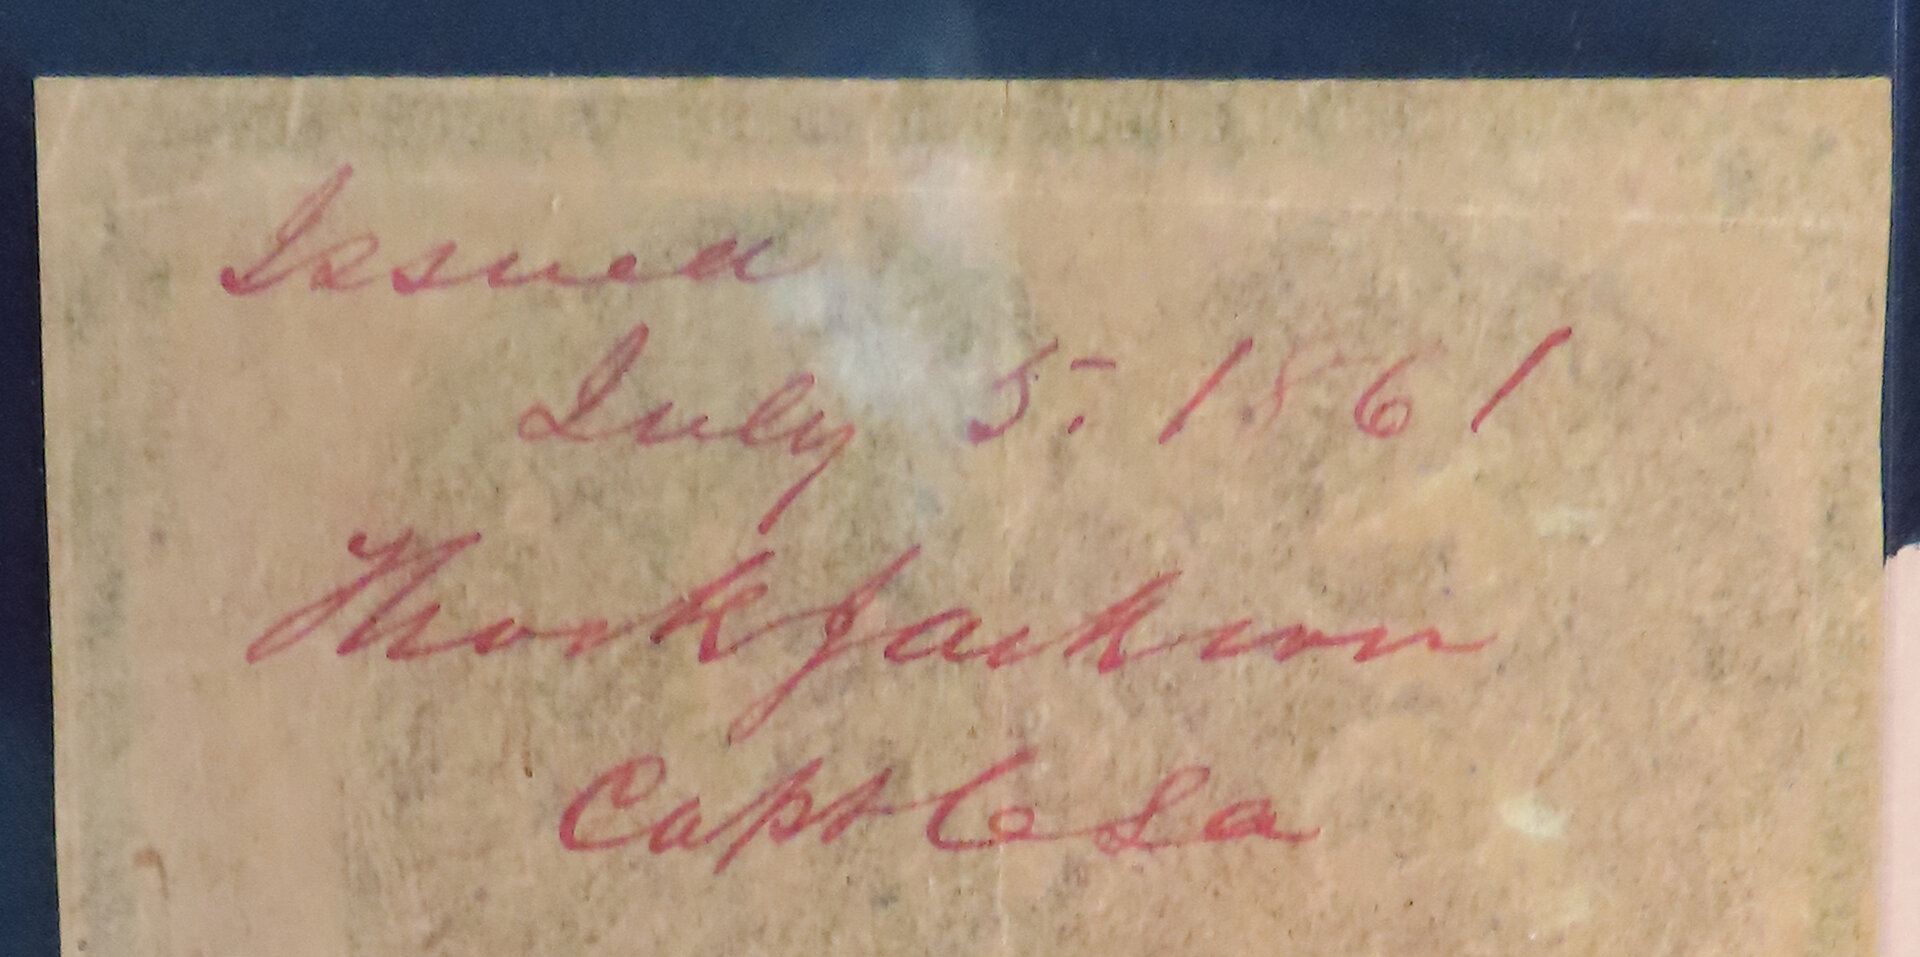 Issued
July 5. 1861
Thos K Jackson
Capt CSa